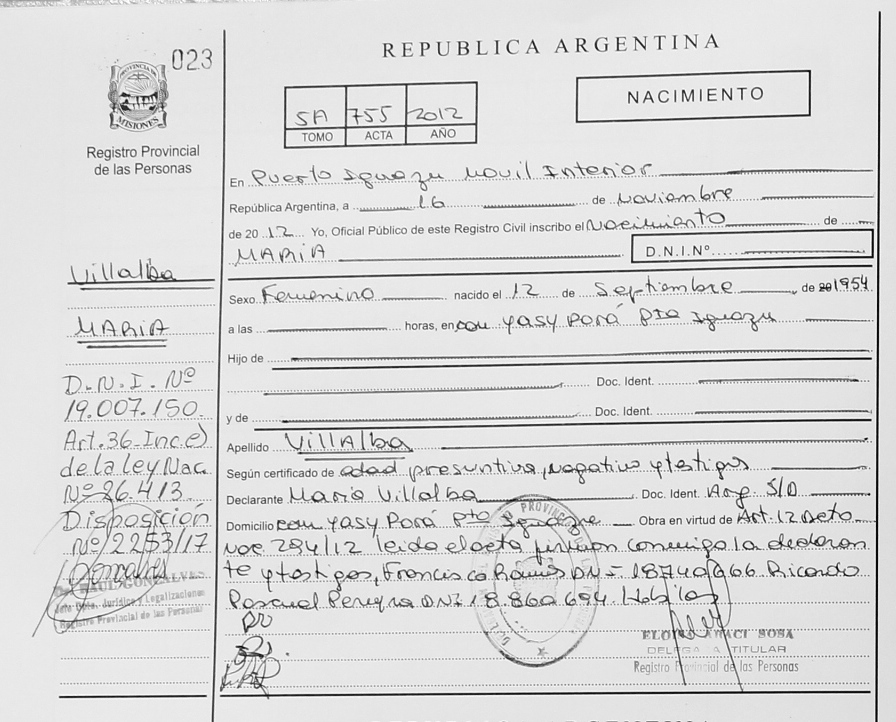 023
REPUBLICA ARGENTINA
PROVINCIA DE
MISIONES
Registro Provincial
de las Personas
5A 755 2012
TOMO ACTA AÑO
NACIMIENTO
En Puerto Iguazu Movil Interior
República Argentina, a 16 de Noviembre
de 2012 Yo, Oficial Público de este Registro Civil inscribo el Nacimiento de
MARIA D.N.I.Nº
Sexo Femenino nacido el 12 de Septiembre, de 1954
a las horas, en com yasy Porá Pto Iguazu
Hijo de
Doc. Ident.
y de Doc. Ident.
Apellido VillAlba
Según certificado de edad presuntiva, negativo y testigos
Declarante Maria Villalba, Doc. Ident. Arg. S/D
Domicilio com yasy Porá Pto Iguazu Obra en virtud de Art. 12 Dcto
Nac 294/12 leida el acta firman conmigo la declaran
te y testigos, Francisco Ramos DNI 18740666 Ricardo
Pascual Pereyra DNI 18.860.694. Habiles
Villalba
MARIA
D.N.I. Nº
19.007.150.
Art. 36 Inc. e)
de la ley Nac
Nº 26.413.
Disposición
Nº 2253/17
RAUL GONZALVES
Jefe Dpto. Jurídico y Legalizaciones
Registro Provincial de las Personas
SOSA
DELEGADA TITULAR
Registro Provincial de las Personas